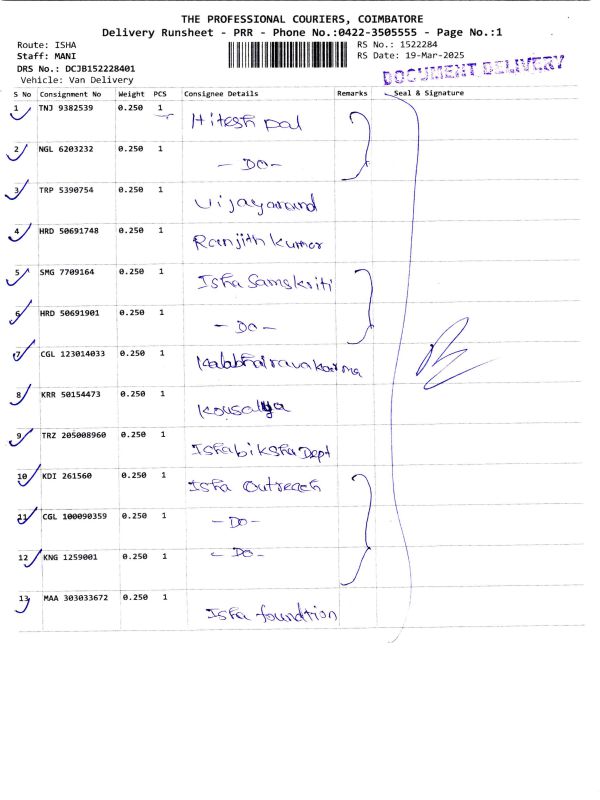 THE PROFESSIONAL COURIERS, COIMBATORE
Delivery Runsheet - PRR - Phone No.:0422-3505555 - Page No.:1
Route: ISHA RS No.: 1522284
Staff: MANI RS Date: 19-Mar-2025
DRS No.: DCJB152228401
Vehicle: Van Delivery
DOCUMENT DELIVERY
S No Consignment No Weight PCS Consignee Details Remarks Seal & Signature
1 TNJ 9382539 0.250 1 Hitesh pal
2 NGL 6203232 0.250 1 - Do -
3 TRP 5390754 0.250 1 Vijayanand
4 HRD 50691748 0.250 1 Ranjith kumar
5 SMG 7709164 0.250 1 Isha Samskriti
6 HRD 50691901 0.250 1 - Do -
7 CGL 123014033 0.250 1 Kalabhairava karma
8 KRR 50154473 0.250 1 Kousalya
9 TRZ 205008960 0.250 1 Ishabiksha Dept
10 KDI 261560 0.250 1 Isha Outreach
11 CGL 100090359 0.250 1 - Do -
12 KNG 1259001 0.250 1 - Do -
13 MAA 303033672 0.250 1 Isha foundtion